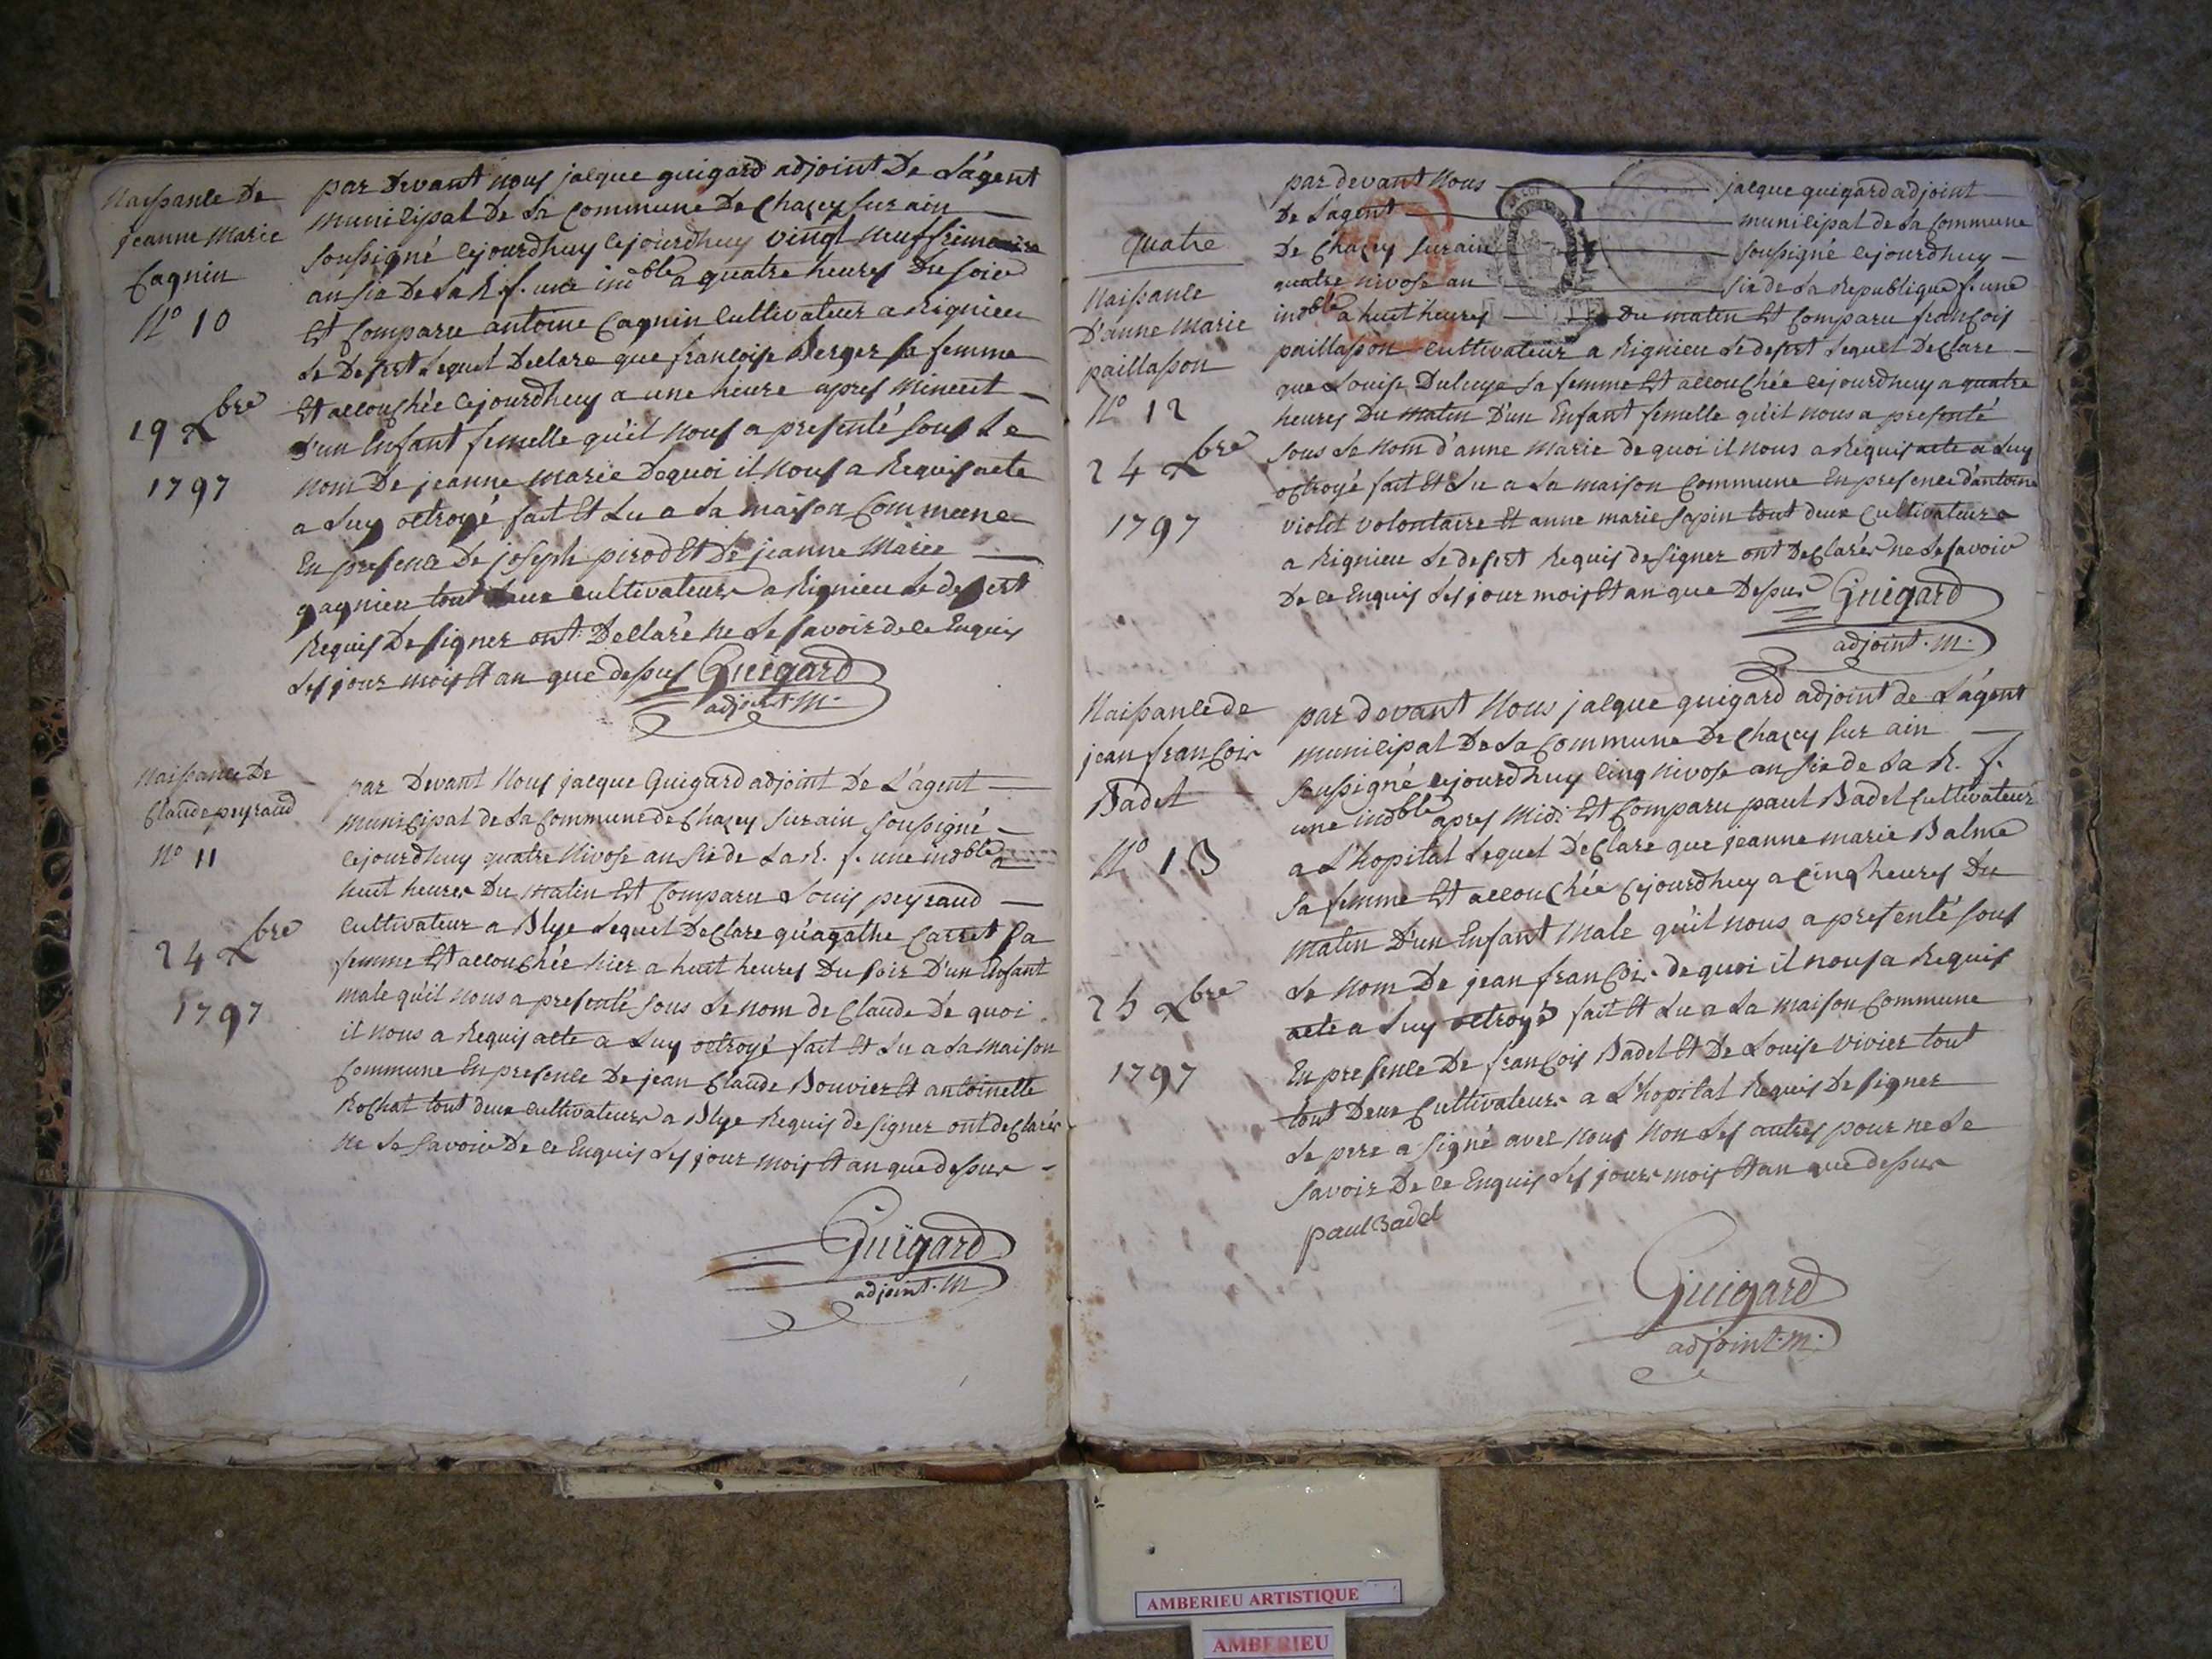 Naissance De
jeanne Marie
Cagnin
N° 10
19 Xbre
1797
par Devant Nous jacque guigard adjoint De L'agent
Municipal De La Commune De Chazey sur ain
soussigné cejourdhuy cejourdhuy vingt neuf frimaire
an six De La R. f. une indble a quatre heures Du soir
Et Comparu antoine Cagnin Cultivateur a Rignieu
Le Desert Lequel Declare que francoise Berger sa femme
Et accouchée cejourdhuy a une heure apres Minuit
D'un Enfant femelle qu'il nous a presenté sous Le
nom De jeanne marie Dequoi il nous a Requis acte
a Luy octroyé fait Et Lu a La maison Commune
En presence De joseph pirod Et De jeanne Marie
gagnieu tout deux cultivateurs a Rignieu Le desert
Requis De signer ont Declaré ne Le savoir de ce Enquis
Les jour mois Et an que dessus Guigard
adjoint. M.
Naissance De
Claude peyraud
N° 11
24 Xbre
1797
par Devant Nous jacque Guigard adjoint De L'agent
Municipal de La Commune de Chazey sur ain soussigné
cejourdhuy quatre Nivose an six de La R. f. une indble a
huit heures Du Matin Et Comparu Louis peyraud
Cultivateur a Blye Lequel DeClare qu'agathe Carret sa
femme Et accouchée hier a huit heures Du soir D'un Enfant
male qu'il nous a presenté sous Le nom de Claude De quoi
il nous a Requis acte a Luy octroyé fait Et Lu a La Maison
Commune En presence De jean Claude Bouvier Et antoinette
Rochat tout deux cultivateurs a Blye Requis de signer ont deClarés
ne Le savoir De ce Enquis Les jour mois Et an que dessus
Guigard
adjoint. M
quatre
Naissance
D'anne Marie
paillasson
N° 12
24 Xbre
1797
par devant Nous jacque guigard adjoint
De L'agent municipal de La Commune
De Chazey sur ain soussigné cejourdhuy
quatre nivose an six de La Republique f. une
indble a huit heures Du matin Et Comparu francois
paillasson Cultivateur a Rignieu Le desert Lequel DeClare
que Louise Duluye sa femme Et accouchée cejourdhuy a quatre
heures Du Matin D'un Enfant femelle qu'il nous a presenté
sous Le nom d'anne Marie de quoi il nous a Requis acte a Luy
octroyé fait Et Lu a La maison Commune En presence d'antoine
violet volontaire Et anne marie sapin tout deux cultivateurs
a Rignieu Le desert Requis de signer ont DeClarés ne Le savoir
De ce Enquis Les jour mois Et an que Dessus Guigard
adjoint. M.
Naissance de
jean francois
Badel
N° 13
25 Xbre
1797
par devant Nous jacque guigard adjoint de L'agent
Municipal De La Commune De Chazey sur ain
soussigné cejourdhuy cinq nivose an six de La R. f.
une indble apres Midi Et Comparu paul Badel Cultivateur
a L'hopital Lequel DeClare que jeanne marie Balme
sa femme Et accouchée cejourdhuy a cinq heures Du
matin D'un Enfant Male qu'il nous a presenté sous
Le nom De jean francois de quoi il nous a Requis
acte a Luy octroyé fait Et Lu a La maison Commune
En presence De francois Badel Et De Louise Vivier tout
tout Deux Cultivateurs a L'hopital Requis De signer
Le pere a signé avec Nous Non Les autres pour ne Le
savoir De ce Enquis Les jours mois Et an que dessus
paul Badel
Guigard
adjoint. m.
AMBERIEU ARTISTIQUE
AMBERIEU